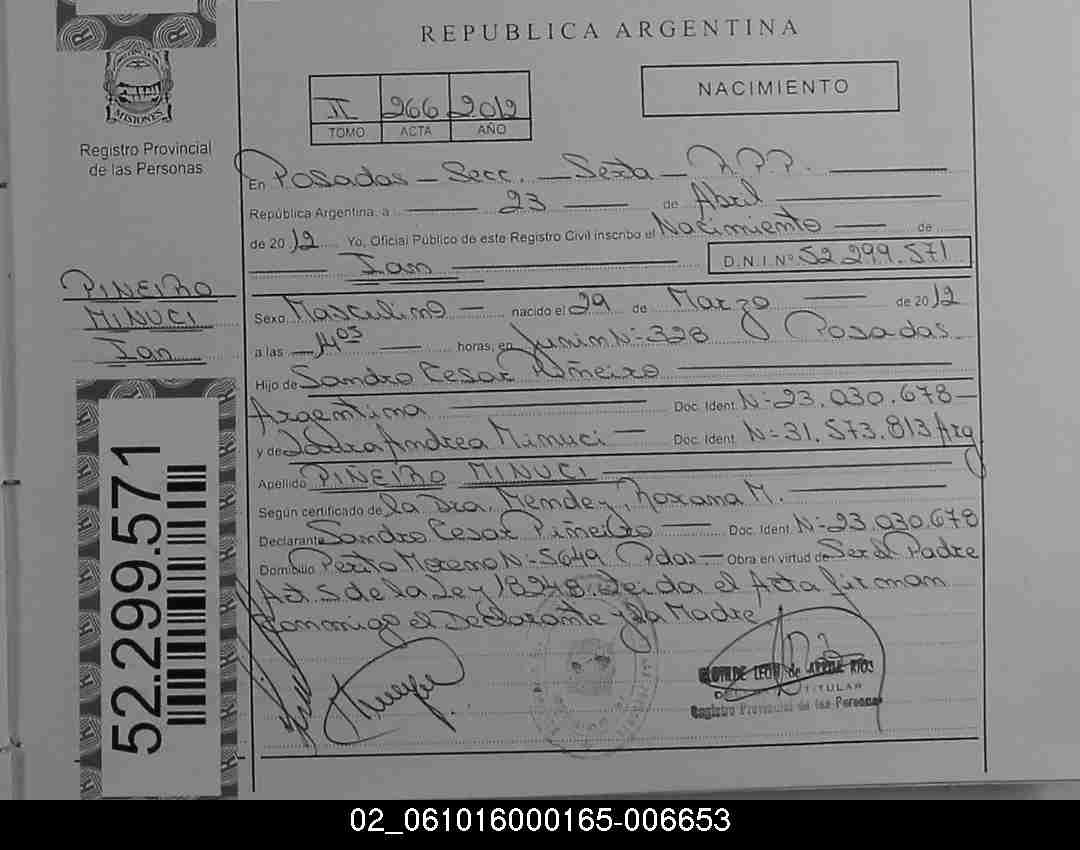 REPUBLICA ARGENTINA
NACIMIENTO
II 266 2012
TOMO ACTA AÑO
MISIONES
Registro Provincial
de las Personas
En Posadas - Secc. - Sexta - R.P.P.
República Argentina, a 23 de Abril
de 2012 Yo, Oficial Público de este Registro Civil inscribo el Nacimiento de
Ian D.N.I. Nº 52.299.571
PIÑEIRO
MINUCI
Ian
Sexo Masculino - nacido el 29 de Marzo de 2012
a las 14 05 horas, en Junin Nº 328 Posadas
Hijo de Sandro Cesar Piñeiro
Argentina Doc. Ident. Nº 23.030.678 -
y de Andrea Minuci - Doc. Ident. Nº 31.573.813 Arg
Apellido PIÑEIRO MINUCI
Según certificado de la Dra. Mendez, Roxana M.
Declarante Sandro Cesar Piñeiro - Doc. Ident. Nº 23.030.678
Domicilio Perito Moreno Nº 5649 Pdas - Obra en virtud de Ser el Padre
Art. 5 de la Ley 18248. Leida el Acta firman
conmigo el Declarante y la Madre
52.299.571
CLOTILDE LEON de RIOS
TITULAR
Registro Provincial de las Personas
02_061016000165-006653